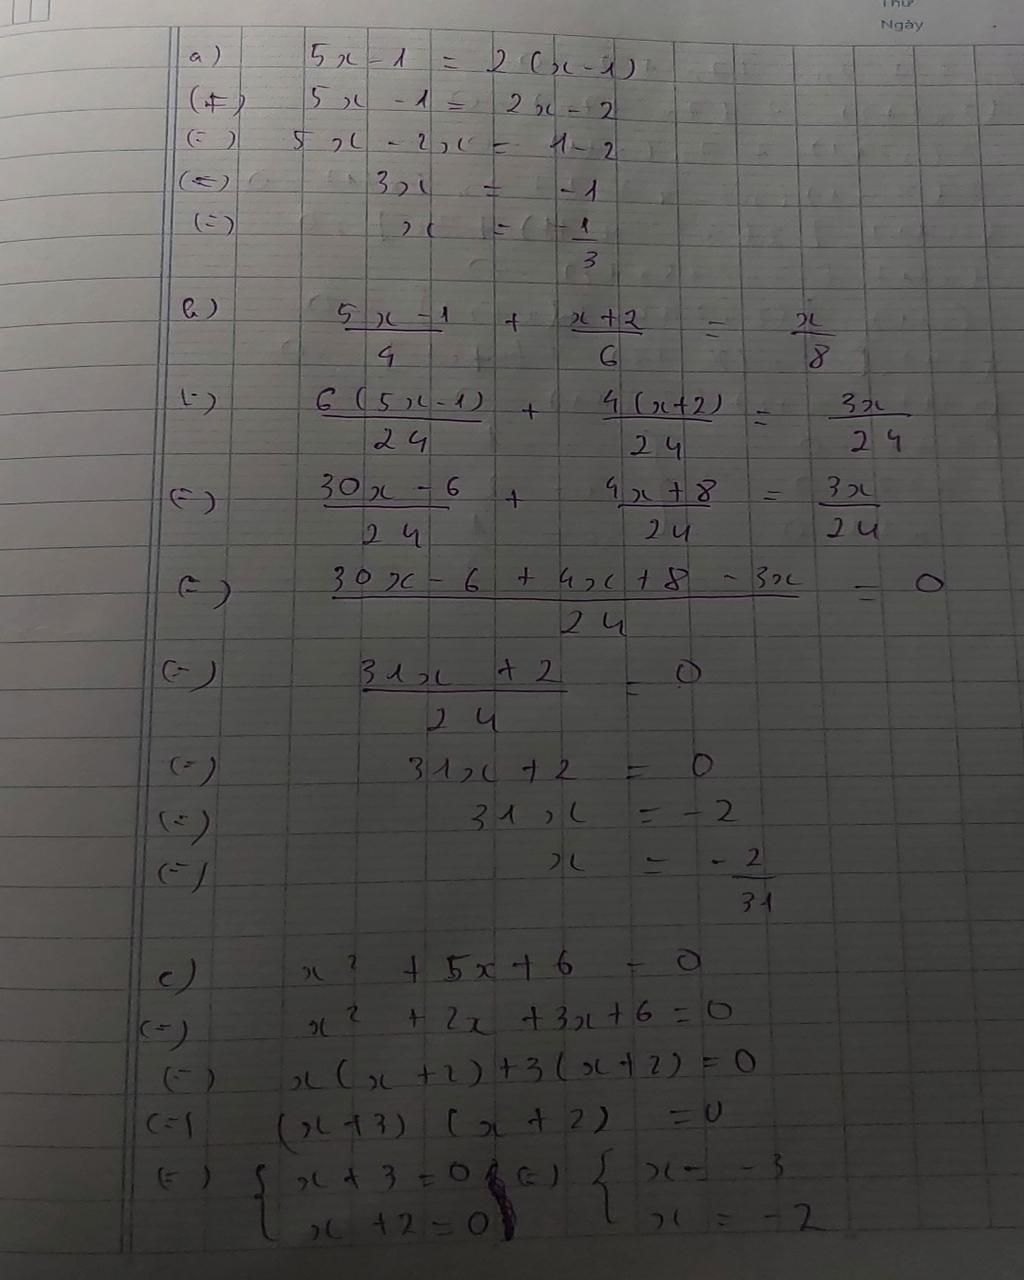 Thứ
Ngày
a) 5x - 1 = 2 (x - 1)
(=) 5x - 1 = 2x - 2
(=) 5x - 2x = 1 - 2
(=) 3x = -1
(=) x = -1/3
b) (5x - 1)/4 + (x + 2)/6 = x/8
(=) 6(5x - 1)/24 + 4(x+2)/24 = 3x/24
(=) (30x - 6)/24 + (4x + 8)/24 = 3x/24
(=) (30x - 6 + 4x + 8 - 3x)/24 = 0
(=) (31x + 2)/24 = 0
(=) 31x + 2 = 0
(=) 31x = -2
(=) x = -2/31
c) x² + 5x + 6 = 0
(=) x² + 2x + 3x + 6 = 0
(=) x(x + 2) + 3(x + 2) = 0
(=) (x + 3) (x + 2) = 0
(=) { x + 3 = 0 (=) { x = -3
x + 2 = 0 x = -2